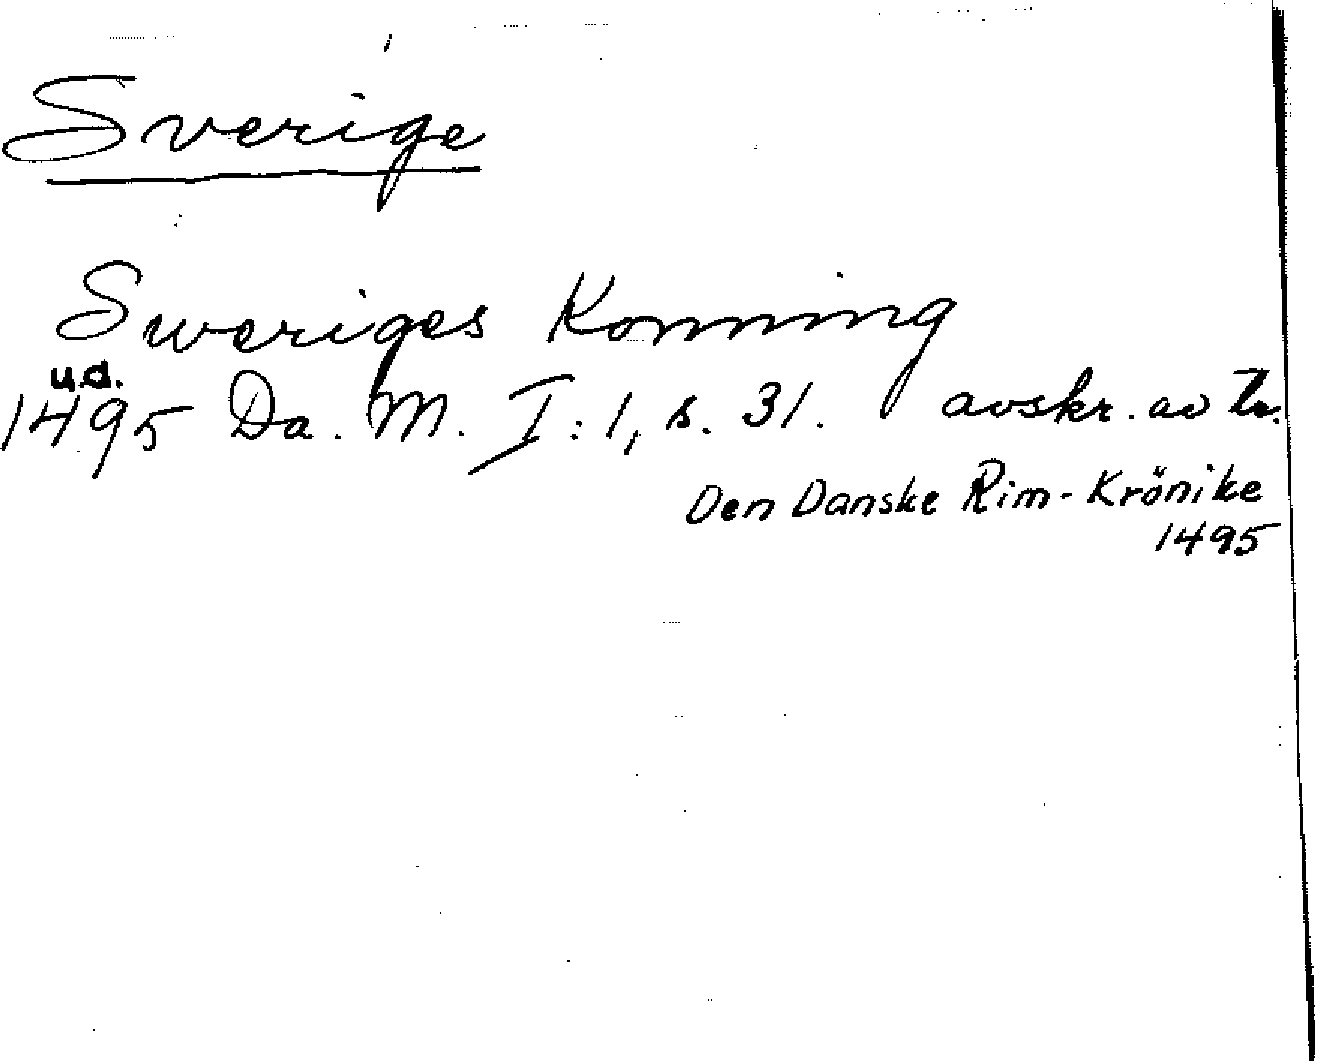 Sverige
Sweriges Konning
u.d.
1495 Da. M. I:1, s. 31. avskr. av tr.
Den Danske Rim-Krönike
1495